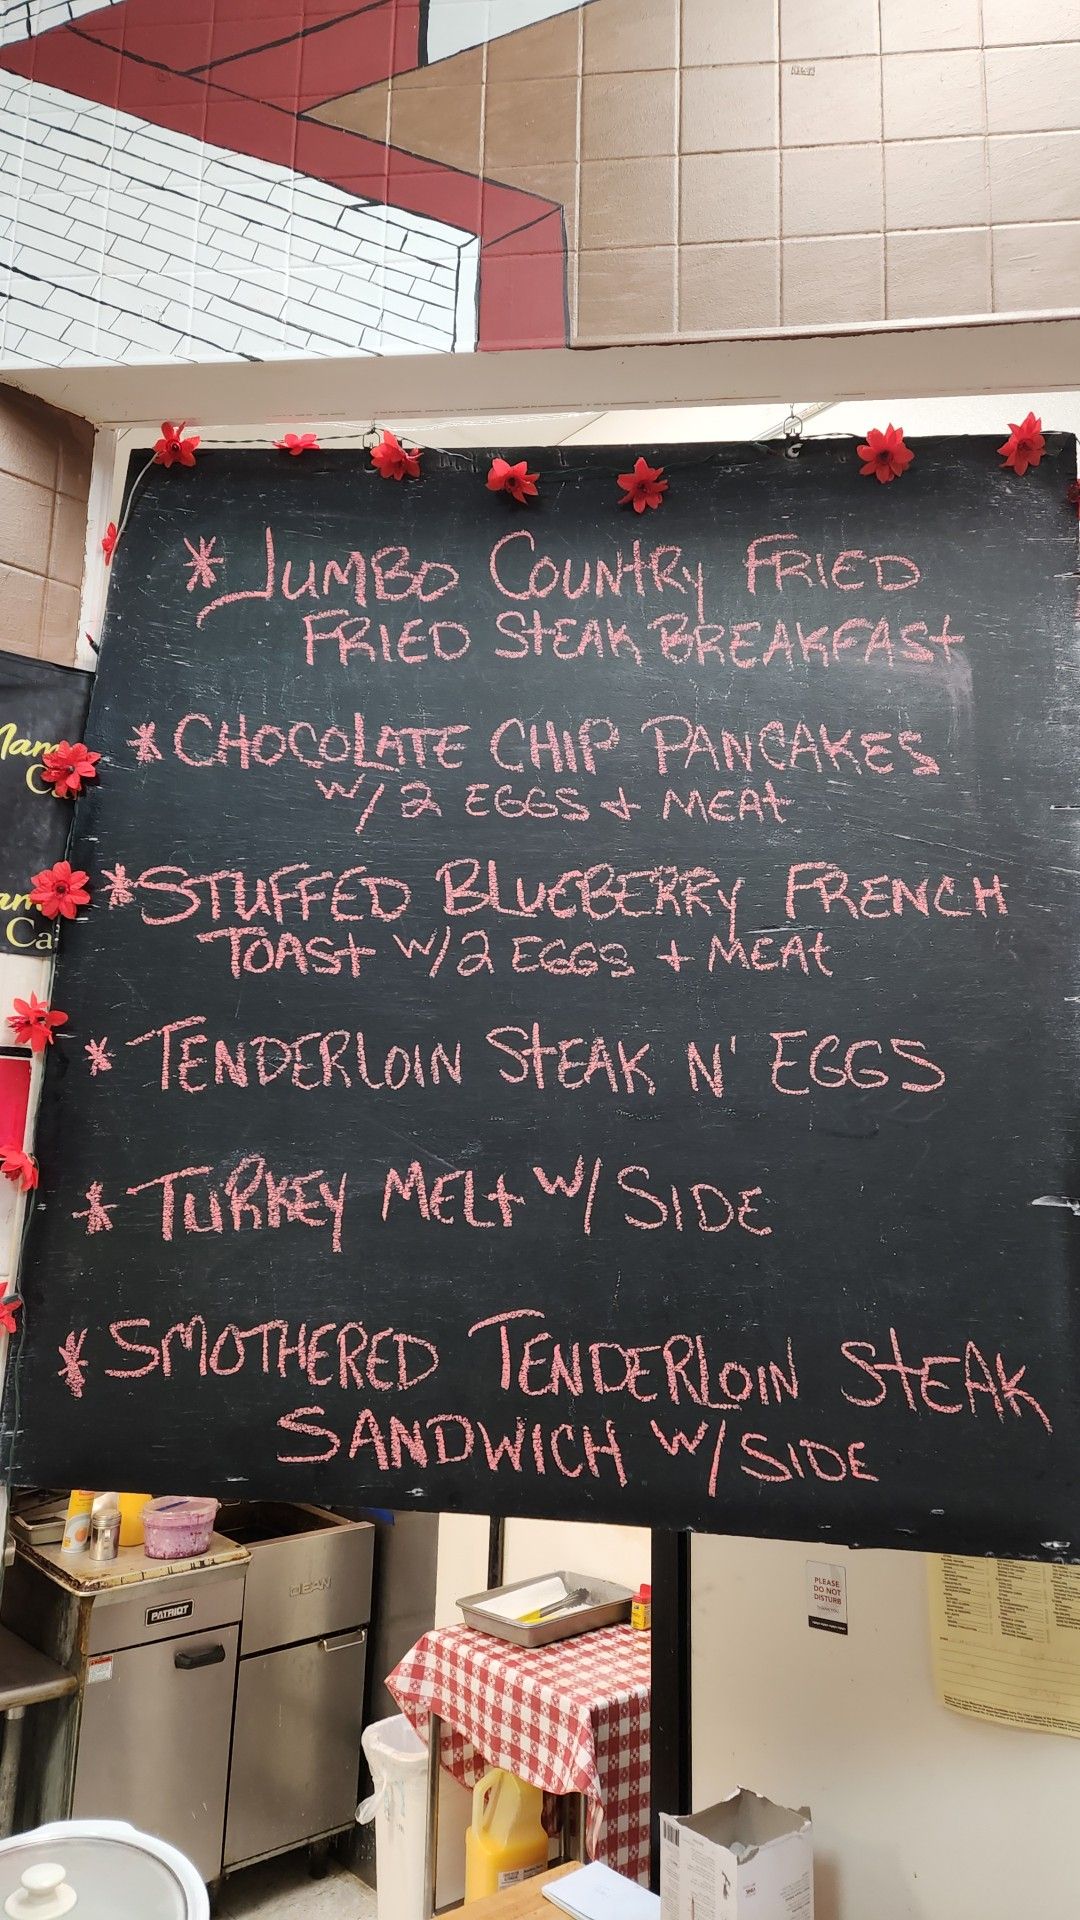 * JUMBO COUNTRY FRIED
FRIED STEAK BREAKFAST
* CHOCOLATE CHIP PANCAKES
W/ 2 EGGS + MEAT
* STUFFED BLUEBERRY FRENCH
TOAST W/2 EGGS + MEAT
* TENDERLOIN STEAK N' EGGS
* TURKEY MELT W/ SIDE
* SMOTHERED TENDERLOIN STEAK
SANDWICH W/ SIDE
PATRIOT
DEAN
PLEASE
DO NOT
DISTURB